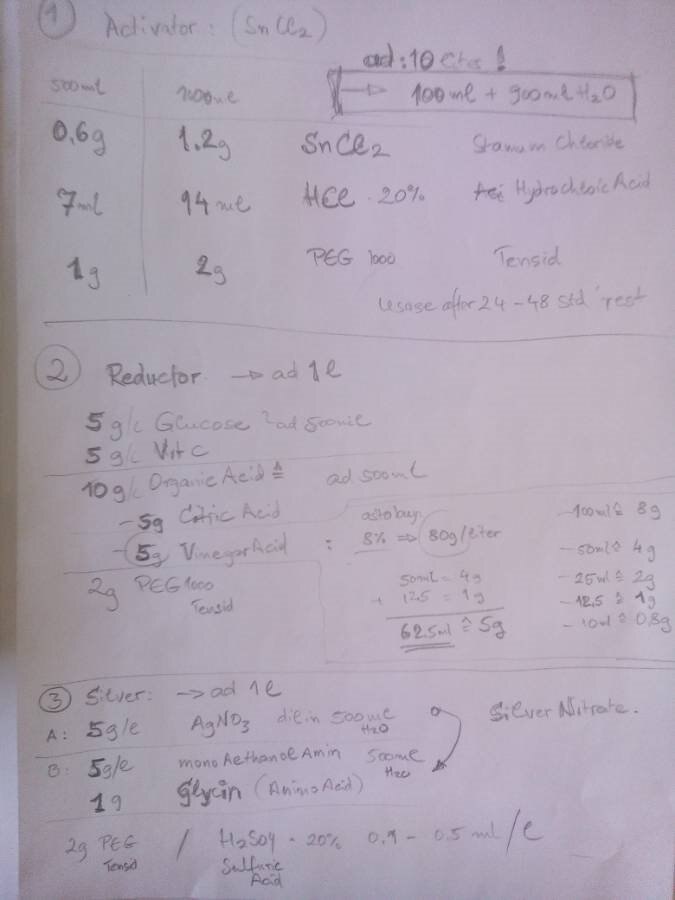 1 Activator: (SnCl2)
ad: 10 Ltr !
500ml 1000ml → 100ml + 900ml H2O
0,6g 1.2g SnCl2 Stannum Chloride
7ml 14ml HCl · 20% Hydrochloic Acid
1g 2g PEG 1000 Tensid
Usage after 24 - 48 Std rest
2 Reductor → ad 1l
5 g/l Glucose ad 500ml
5 g/l Vit C
10 g/l Organic Acid ≙ ad 500ml
- 5g Citric Acid
- 5g Vinegar Acid :
2g PEG 1000
Tensid
8% ⇒ 80g/liter
50ml = 4g
+ 12.5 = 1g
62.5ml ≙ 5g
- 100ml ≙ 8g
- 50ml ≙ 4g
- 25ml ≙ 2g
- 12,5 ≙ 1g
- 10ml ≙ 0,8g
3 Silver: → ad 1l
A: 5g/l AgNO3 dil in 500ml H2O Silver Nitrate.
B: 5g/l mono Aethanol Amin 500ml H2O
1g Glycin (Amino Acid)
2g PEG / H2SO4 - 20% 0,1 - 0.5 ml/l
Tensid Sulfuric
Acid